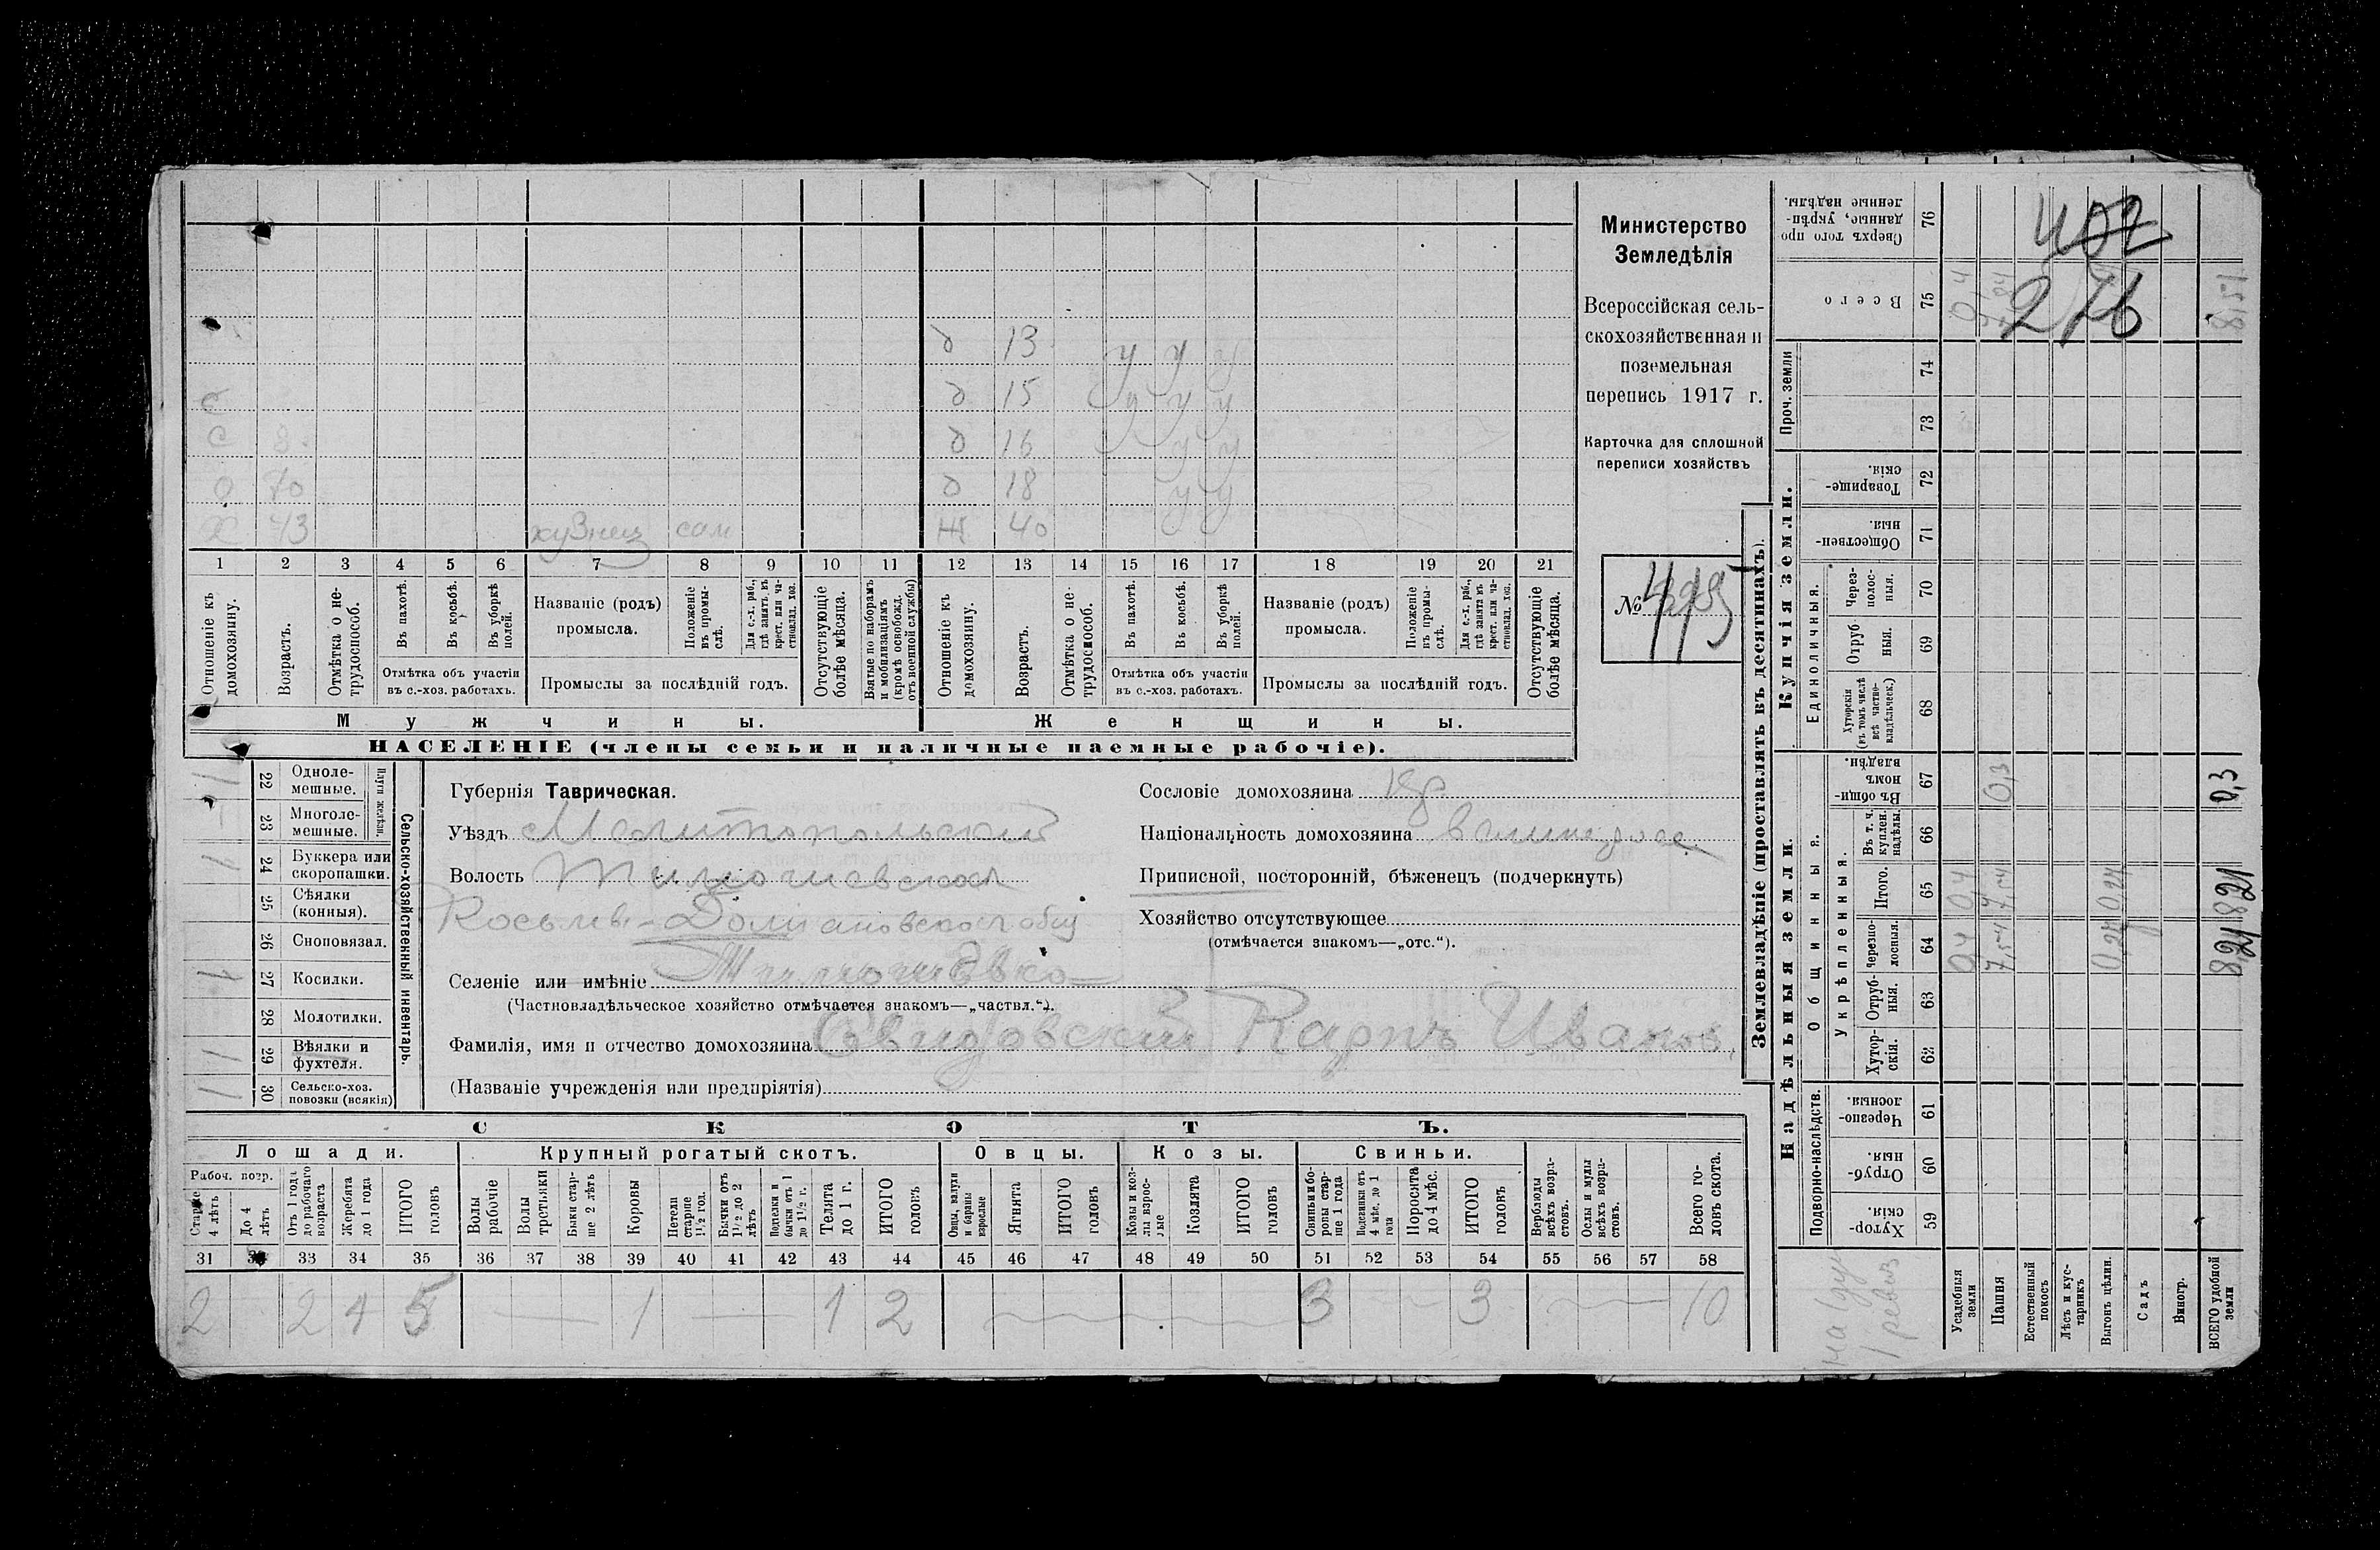 Министерство
Земледѣлія
Всероссійская сель-
скохозяйственная и
поземельная
перепись 1917 г.
Карточка для сплошной
переписи хозяйствъ
№
д 13
д 15
с
д 16 у у
с 8
д 18 у у
о 70
Ж 40
Х 43 кузнец сам
1 2 3 4 5 6 7 8 9 10 11 12 13 14 15 16 17 18 19 20 21
Отношеніе къ домохозяину.
Возрастъ.
Отмѣтка о не-трудоспособ.
Въ пахотѣ.
Въ косьбѣ.
Въ уборкѣ полей.
Отмѣтка объ участіи
въ с.-хоз. работахъ.
Названіе (родъ)
промысла.
Положеніе въ промы-слѣ.
Для с.-х. раб., гдѣ занятъ въ крест. или ча-стновлад. хоз.
Промыслы за послѣдній годъ.
Отсутствующіе болѣе мѣсяца.
Взятые по наборамъ и мобилизаціямъ (кромѣ освобожд. отъ военной службы)
Отношеніе къ домохозяину.
Возрастъ.
Отмѣтка о не-трудоспособ.
Въ пахотѣ.
Въ косьбѣ.
Въ уборкѣ полей.
Отмѣтка объ участіи
въ с.-хоз. работахъ.
Названіе (родъ)
промысла.
Положеніе въ промы-слѣ.
Для с.-х. раб., гдѣ занята въ крест. или ча-стновлад. хоз.
Промыслы за послѣдній годъ.
Отсутствующіе болѣе мѣсяца.
Мужчины.
Женщины.
НАСЕЛЕНІЕ (члены семьи и наличные наемные рабочіе).
Сельско-хозяйственный инвентарь.
Плуги желѣзн.
22 Одноле-мешные.
23 Многоле-мешные.
24 Буккера или скоропашки.
25 Сѣялки (конныя).
26 Сноповязал.
27 Косилки.
28 Молотилки.
29 Вѣялки и фухтеля.
30 Сельско-хоз. повозки (всякія)
Губернія Таврическая.
Уѣздъ Мелитопольский
Волость Тимошевская
Косьмо-Домиановское общ
Селеніе или имѣніе Тимошевко
(Частновладѣльческое хозяйство отмѣчается знакомъ—„частвл.“).
Фамилія, имя и отчество домохозяина Свидовский Карпъ Иванов.
(Названіе учрежденія или предпріятія)
Сословіе домохозяина кр
Національность домохозяина
Приписной, посторонній, бѣженецъ (подчеркнуть)
Хозяйство отсутствующее
(отмѣчается знакомъ—„отс.“).
СКОТЪ.
Лошади. Крупный рогатый скотъ. Овцы. Козы. Свиньи.
Рабоч. возр.
Старше 4 лѣтъ
До 4 лѣтъ
Отъ 1 года до рабочаго возраста
Жеребята до 1 года
ИТОГО головъ
Волы рабочіе
Волы третьяки
Быки стар-ше 2 лѣтъ
Коровы
Нетели старше 1½ год.
Бычки отъ 1½ до 2 лѣтъ
Подтелки и бычки отъ 1 до 1½ г.
Телята до 1 г.
ИТОГО головъ
Овцы, валухи и бараны взрослые
Ягнята
ИТОГО головъ
Козы и коз-лы взрос-лые
Козлята
ИТОГО головъ
Свиньи и бо-ровы стар-ше 1 года
Подсвинки отъ 4 мѣс. до 1 года
Поросята до 4 мѣс.
ИТОГО головъ
Верблюды всѣхъ возра-стовъ.
Ослы и мулы всѣхъ возра-стовъ.
Всего го-ловъ скота.
31 33 34 35 36 37 38 39 40 41 42 43 44 45 46 47 48 49 50 51 52 53 54 55 56 57 58
2 2 1 5 1 1 2 3 3 10
Землевладѣніе (проставлять въ десятинахъ).
Надѣльныя земли.
Купчія земли.
Проч. земли
Подворно-наслѣдств.
Общинныя.
Укрѣпленныя.
Единоличныя.
Сверхъ того про-данные, укрѣп-ленные надѣлы. 76
Всего 75
74
73
Товарище-скія. 72
Обществен-ныя. 71
Через-полос-ныя. 70
Отруб-ныя. 69
Хуторскія (въ томъ числѣ всѣ частно-владѣльческ.) 68
Въ общи-номъ владѣн. 67
Въ т. ч. куплен. надѣлы. 66
Итого. 65
Черезпо-лосныя. 64
Отруб-ныя. 63
Хутор-скія. 62
Черезпо-лосныя. 61
Отруб-ныя. 60
Хутор-скія. 59
Усадебныя земли
Пашня
Естественный покосъ
Лѣсъ и кус-тарникъ
Выгонъ цѣлин.
Садъ
Виногр.
ВСЕГО удобной земли
276
0,4 0,4 0,4
7,54 7,54 0,3
0,27 0,27
8,21 8,21 0,3 8,51